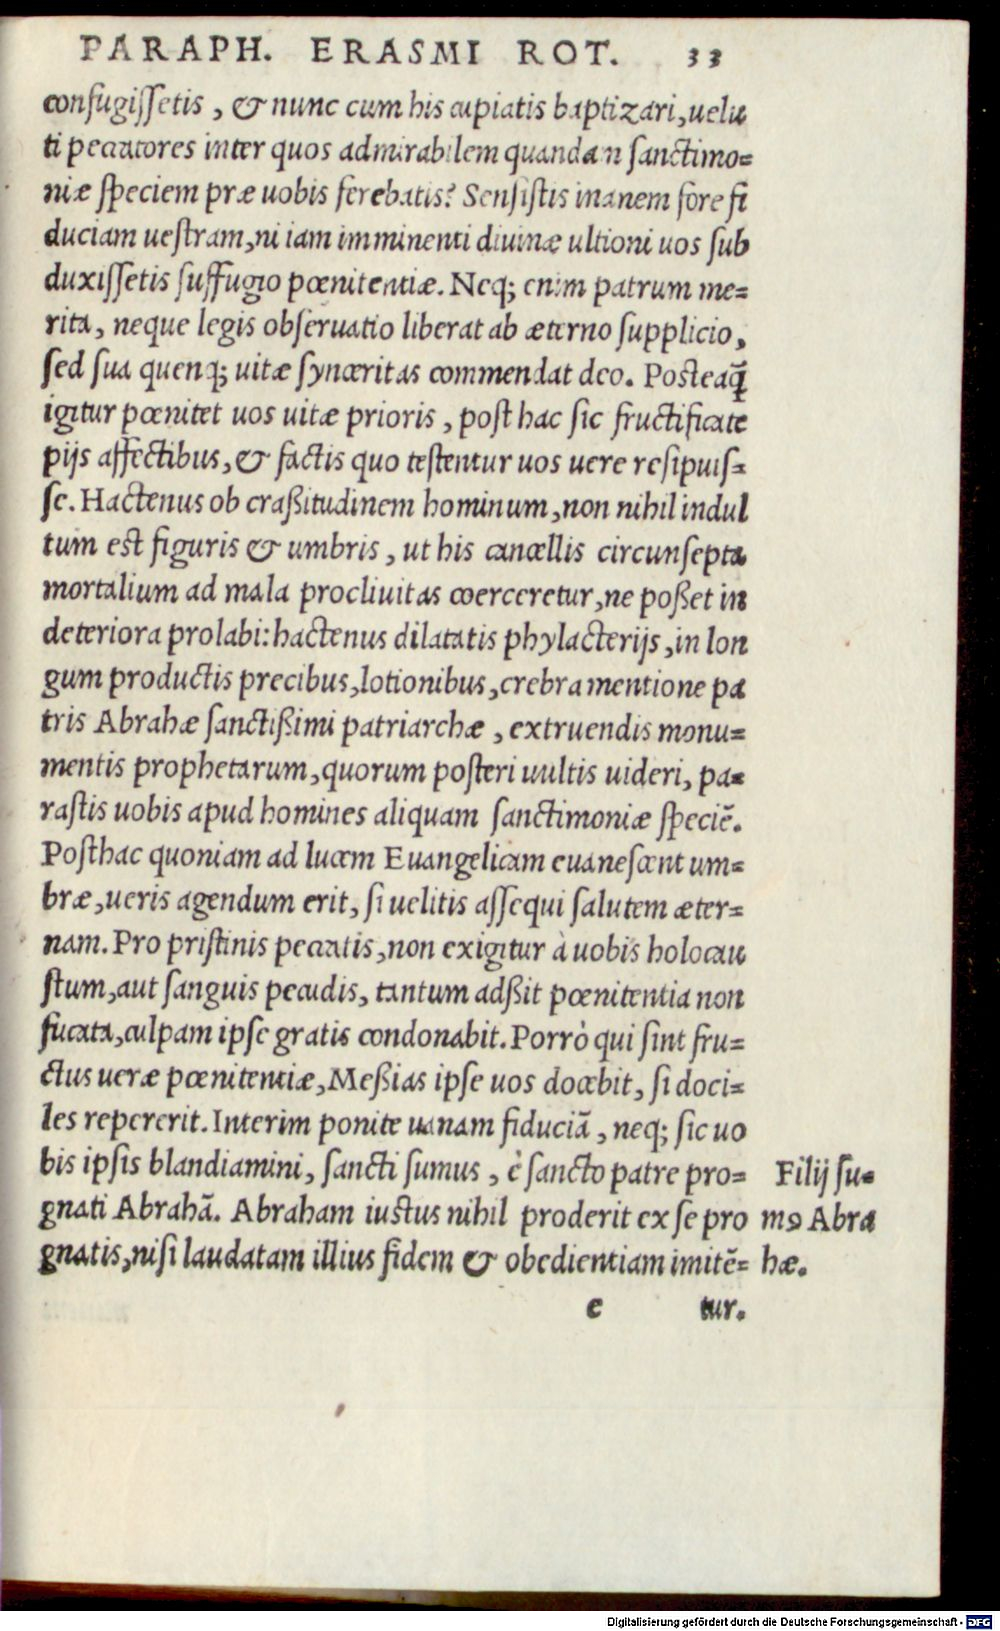 PARAPH. ERASMI ROT. 33
confugissetis, & nunc cum his cupiatis baptizari, uelu
ti peccatores inter quos admirabilem quandam sanctimo=
niæ speciem præ uobis ferebatis? Sensistis inanem fore fi
duciam uestram, ni iam imminenti diuinæ ultioni uos sub
duxissetis suffugio pœnitentiæ. Neq; enim patrum me=
rita, neque legis obseruatio liberat ab æterno supplicio,
sed sua quenq; uitæ synceritas commendat deo. Posteaq̃
igitur pœnitet uos uitæ prioris, post hac sic fructificate
pijs affectibus, & factis quo testentur uos uere resipuis=
se. Hactenus ob craßitudinem hominum, non nihil indul
tum est figuris & umbris, ut his cancellis circunsepta
mortalium ad mala procliuitas coerceretur, ne poßet in
deteriora prolabi: hactenus dilatatis phylacterijs, in lon
gum productis precibus, lotionibus, crebra mentione pa
tris Abrahæ sanctißimi patriarchæ, extruendis monu=
mentis prophetarum, quorum posteri uultis uideri, pa=
rastis uobis apud homines aliquam sanctimoniæ speciẽ.
Posthac quoniam ad lucem Euangelicam euanescent um=
bræ, ueris agendum erit, si uelitis assequi salutem æter=
nam. Pro pristinis peccatis, non exigitur à uobis holocau
stum, aut sanguis pecudis, tantum adßit pœnitentia non
fucata, culpam ipse gratis condonabit. Porrò qui sint fru=
ctus ueræ pœnitentiæ, Meßias ipse uos docebit, si doci=
les repererit. Interim ponite uanam fiduciã, neq; sic uo
bis ipsis blandiamini, sancti sumus, è sancto patre pro= Filij su=
gnati Abrahã. Abraham iustus nihil proderit ex se pro mꝰ Abra
gnatis, nisi laudatam illius fidem & obedientiam imitẽ= hæ.
e tur.
Digitalisierung gefördert durch die Deutsche Forschungsgemeinschaft - DFG